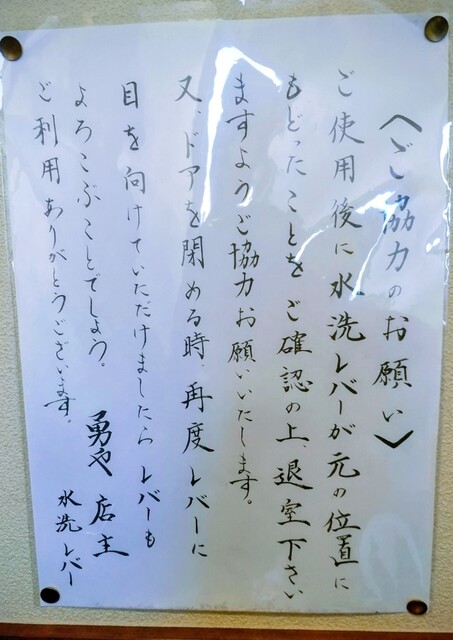 〈ご協力のお願い〉
ご使用後に水洗レバーが元の位置に
もどったことをご確認の上、退室下さい
ますようご協力お願いいたします。
又、ドアを閉める時、再度レバーに
目を向けていただけましたらレバーも
よろこぶことでしょう。
ご利用ありがとうございます。
勇や 店主
水洗レバー